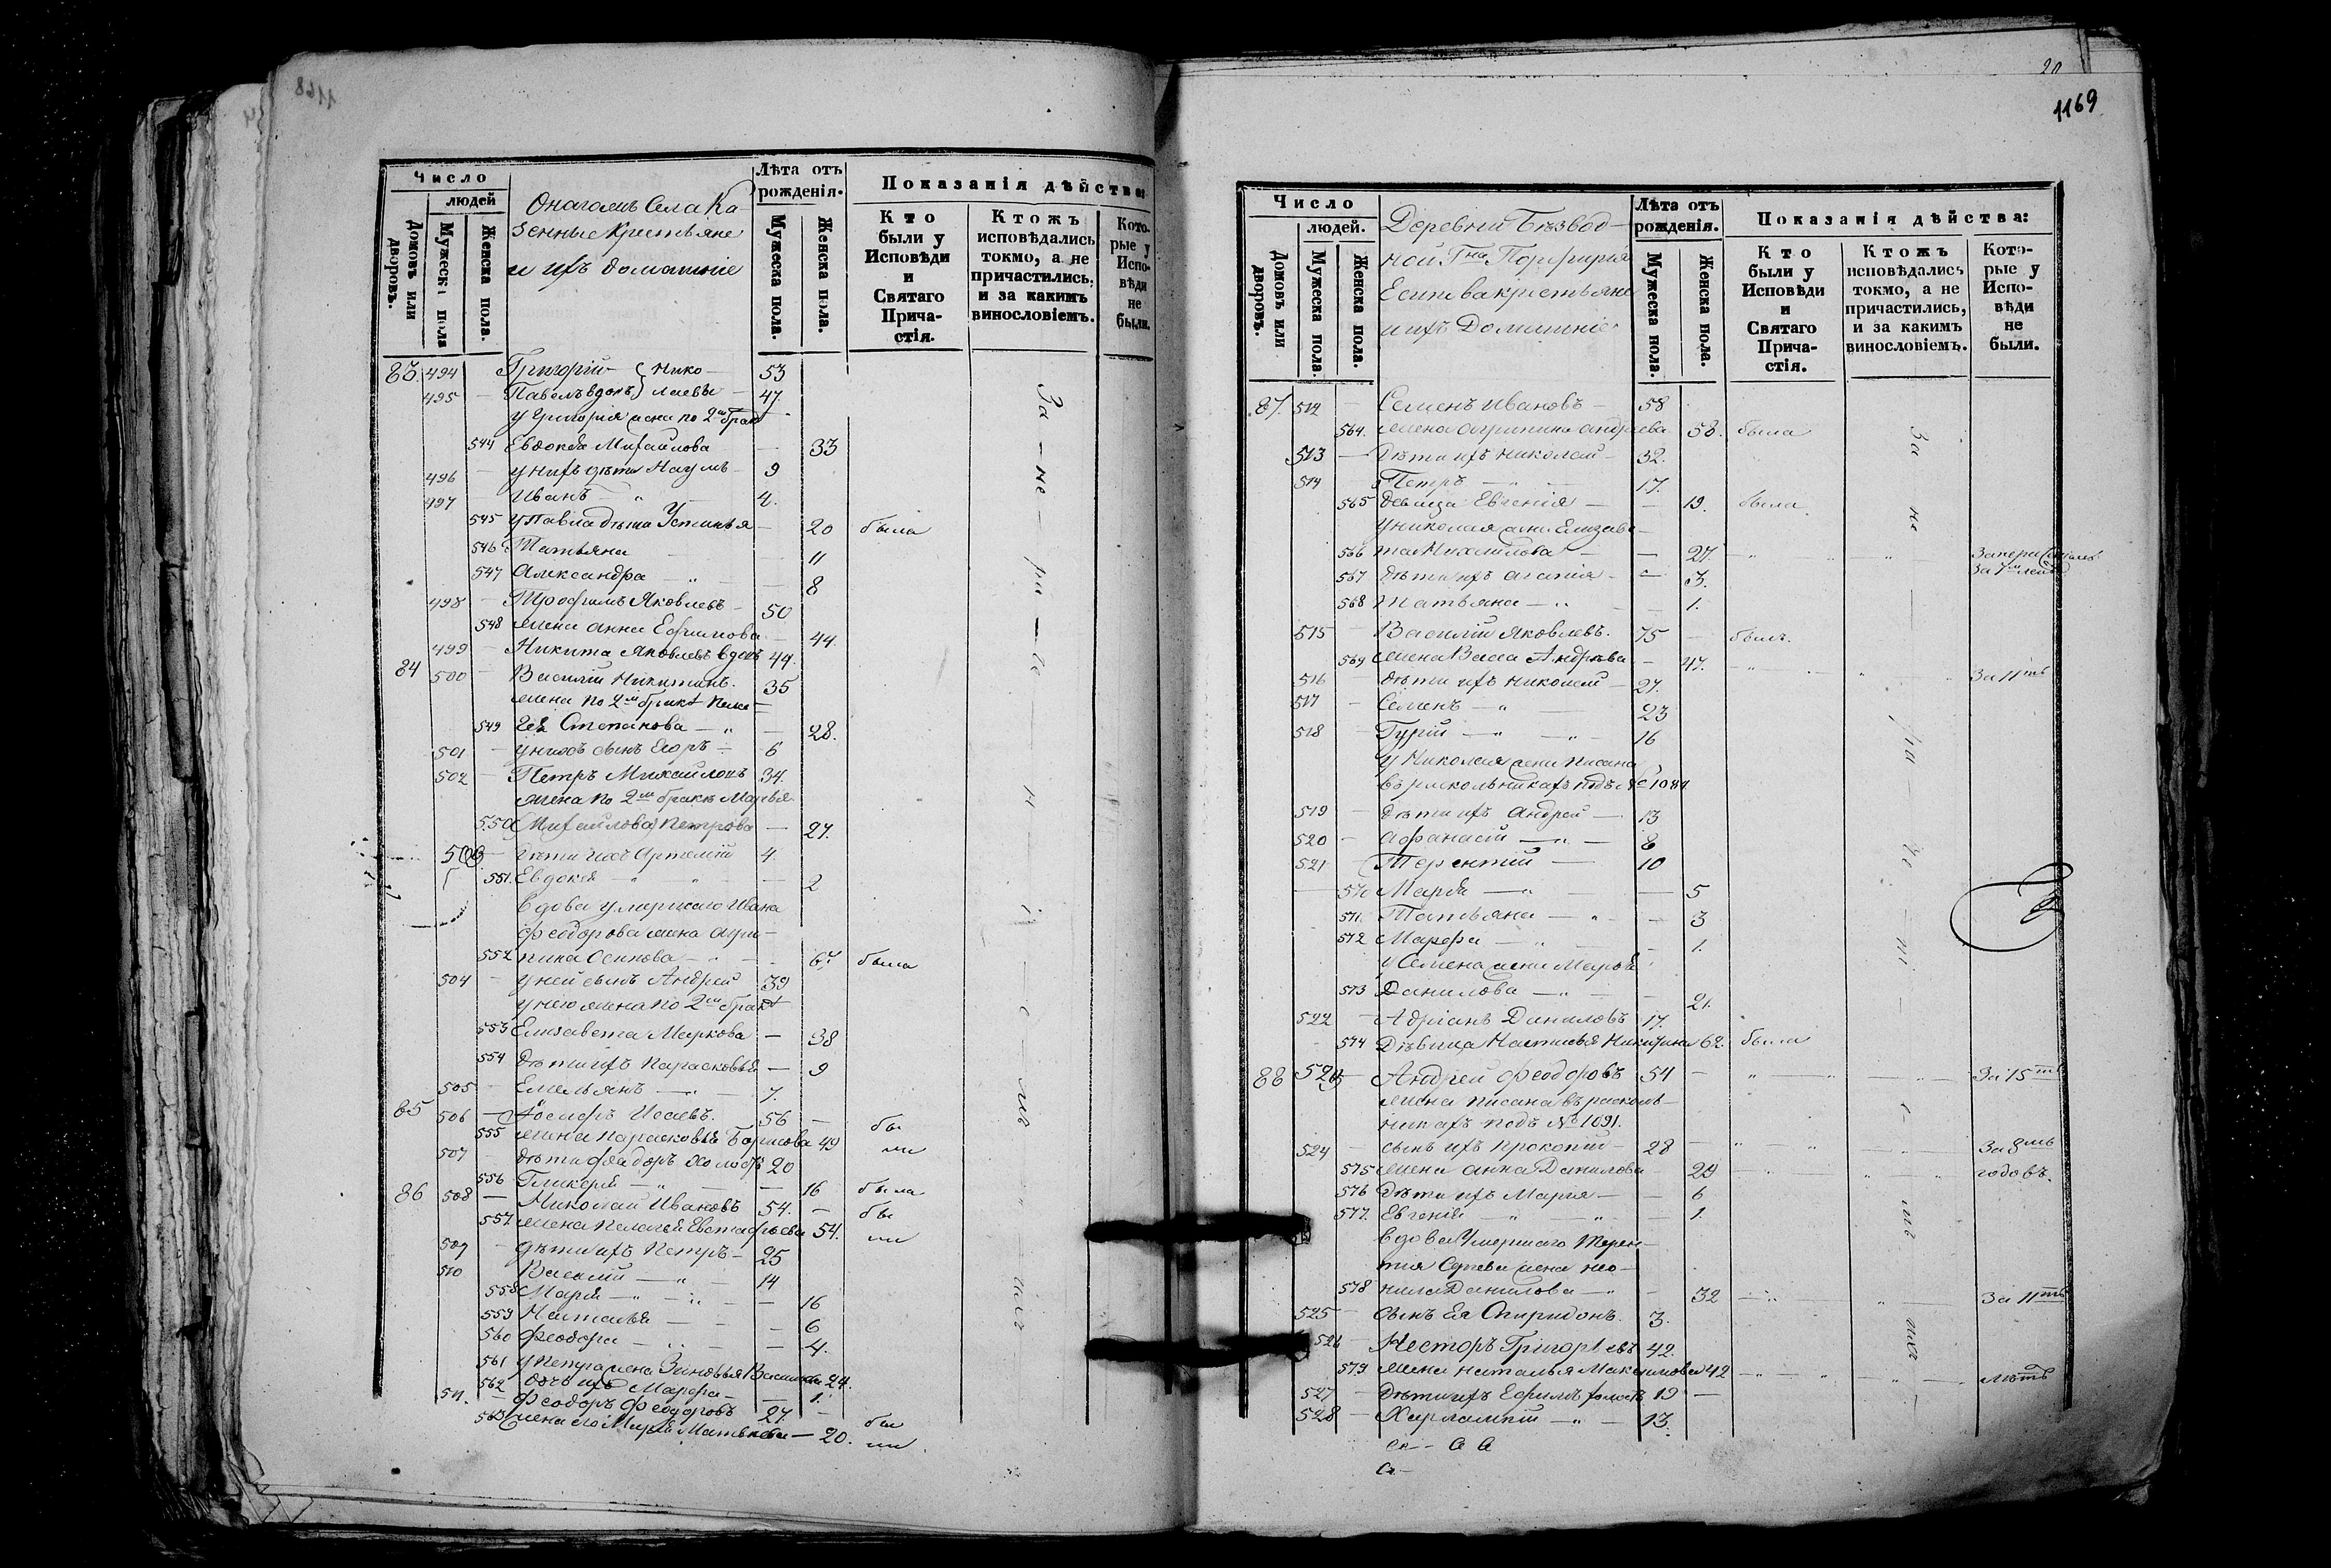 1168
Число
людей
Домовъ или дворовъ.
Мужеска пола
Женска пола.
Казенные Крестьяне
и ихъ домашніе
Лѣта отъ рожденія.
Мужеска пола.
Женска пола.
Показанія дѣйства:
Кто были у Исповѣди и Святаго Причастія.
Ктожъ исповѣдались токмо, а не причастились, и за какимъ винословіемъ.
Которые у Исповѣди не были.
83. 494 Григорій } Нико- 53
495 — Павелъ вдовъ } лаевы — 47.
у Григорія жена по 2мъ бракѣ
544 Евдокія Михайлова — 33
496 — у нихъ дѣти Наумъ — 9
497 — Иванъ — 4.
545 у Павла дѣти Устинья — 20 была
546 Татьяна — 11
547 Александра — 8
498 — Трофимъ Яковлевъ — 50
548 жена Анна Ефимова — 44.
499 — Никита Яковлевъ вдовъ 44.
84 500 — Василій Никитинъ. 35
жена по 2мъ бракѣ Пела-
549 гея Степанова — 28.
501 — у нихъ сынъ Егоръ — 6
502 — Петръ Михайловъ 34.
жена по 2мъ бракѣ Марья
550 (Михайлова) Петрова — 27.
503 — дѣти ихъ Артемій 4.
551. Евдокія — 2
вдова умершаго Ивана
Феодорова жена Агри-
552 пина Осипова — 67 была
504 — у ней сынъ Андрей 39
у него жена по 2мъ бракѣ
553 Елизавета Маркова — 38
554 дѣти ихъ Парасковья — 9
505 — Емельянъ — 7.
85 506 — Іосифъ Исаевъ. 56 — бы
555 жена Парасковья Борисова 49 ли
507 — дѣти Феадоръ холостъ 20
556 Гликерія — 16 была
86 508 — Николай Ивановъ 54. — бы
557. жена Пелагея Евстафьева 54. ли
509 — дѣти ихъ Петръ — 25
510 Василій — 14
558 Марія — 16
559 Наталья — 6
560 Феодора — 4.
561 у Петра жена Зиновья Васильева 24.
562 дочь ихъ Марфа — 1.
511. — Феодоръ Феодоровъ 27. — бы
563 жена его Марья Матвѣева — 20. ли
20
1169
Число
людей.
Домовъ или дворовъ.
Мужеска пола.
Женска пола.
Деревни Безвод-
ной Гна Порфирія
Есипова крестьяне
и ихъ Домашніе
Лѣта отъ рожденія.
Мужеска пола.
Женска пола.
Показанія дѣйства:
Кто были у Исповѣди и Святаго Причастія.
Ктожъ исповѣдались токмо, а не причастились, и за какимъ винословіемъ.
Которые у Исповѣди не были.
87. 512 — Семенъ Ивановъ — 58
564. жена Агрипина Андреева 58. была
513 — Дѣти ихъ Николай — 32.
514 Петръ — 17.
565 девица Евгенія — 19. была
у Николая жена Елизаве-
566 та Михайлова — 27
567 дѣти ихъ Агафія — 3.
568 Татьяна — 1.
515 — Василій Яковлевъ. 75 — былъ.
569 жена Васса Андреева — 47. За 11ть
516 — дѣти ихъ Николай — 27.
517 — Семенъ — 23
518 — Гурій — 16
у Николая жена писана
въ раскольникахъ подъ №
519 — дѣти ихъ Андрей — 13
520 — Афанасій — 8
521 — Терентій — 10
570 Марія — 5
571. Татьяна — 3
572 Марфа — 1.
у Семена жена Марья
573 Данилова — 21.
522 — Адріанъ Даниловъ 17.
574 Дѣвица Настасья Никитина 62. была
88 523 — Андрей Феодоровъ 54 — За 15ть
жена писана въ расколь-
никахъ подъ № 1091.
524 — сынъ ихъ Прокопій — 28 — За 8мь
575 жена Анна Данилова — 29 годовъ.
576 дѣти ихъ Марія — 6
577. Евгенія — 1.
вдова Умершаго Терен-
тія жена Нео-
578 нила Данилова — 32 За 11ть
525 — Сынъ Ея Спиридонъ. 3.
526 — Несторъ Григорьевъ 42.
579 жена Наталья Максимова 42 лѣтъ
527 — Дѣти ихъ Ефимъ холостъ 19 —
528 — Харлампій — 13.